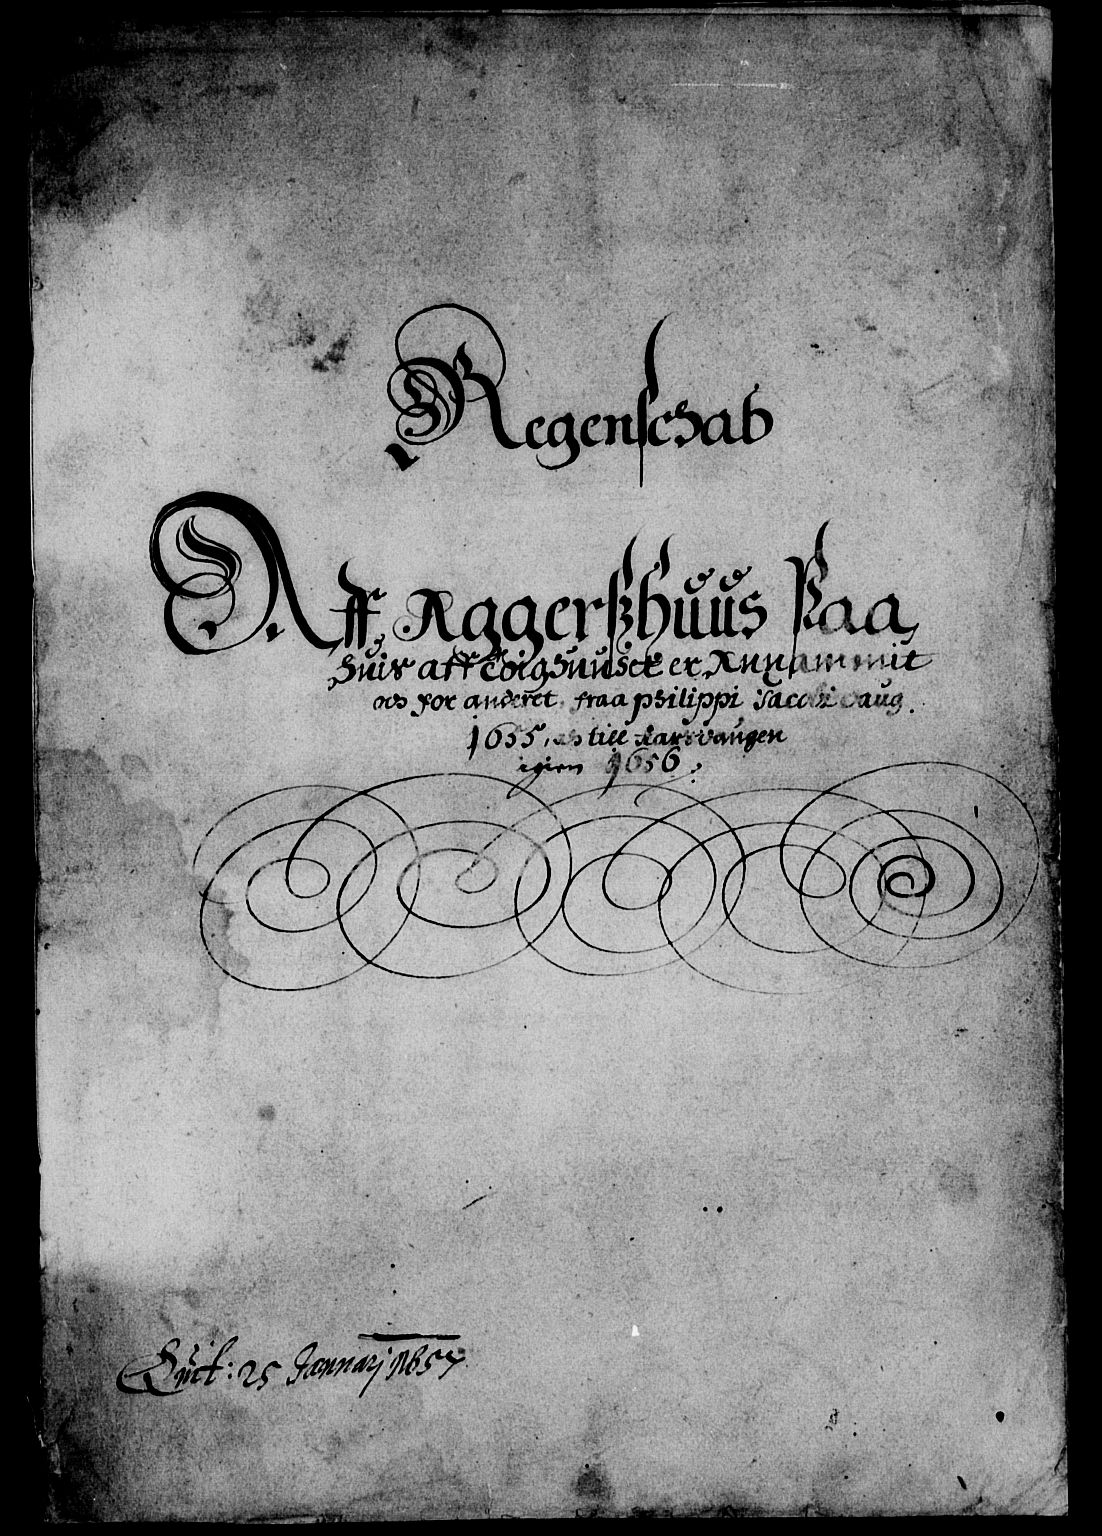 Regenschab
Aff Aggerßhuus Paa
huis aff Töighuusct er Annammit
och for anderet, fraa philippi Jacobi daug
1655, och till Aarsdaugen
igien 1656.
Quit: 25 Januarj 1657